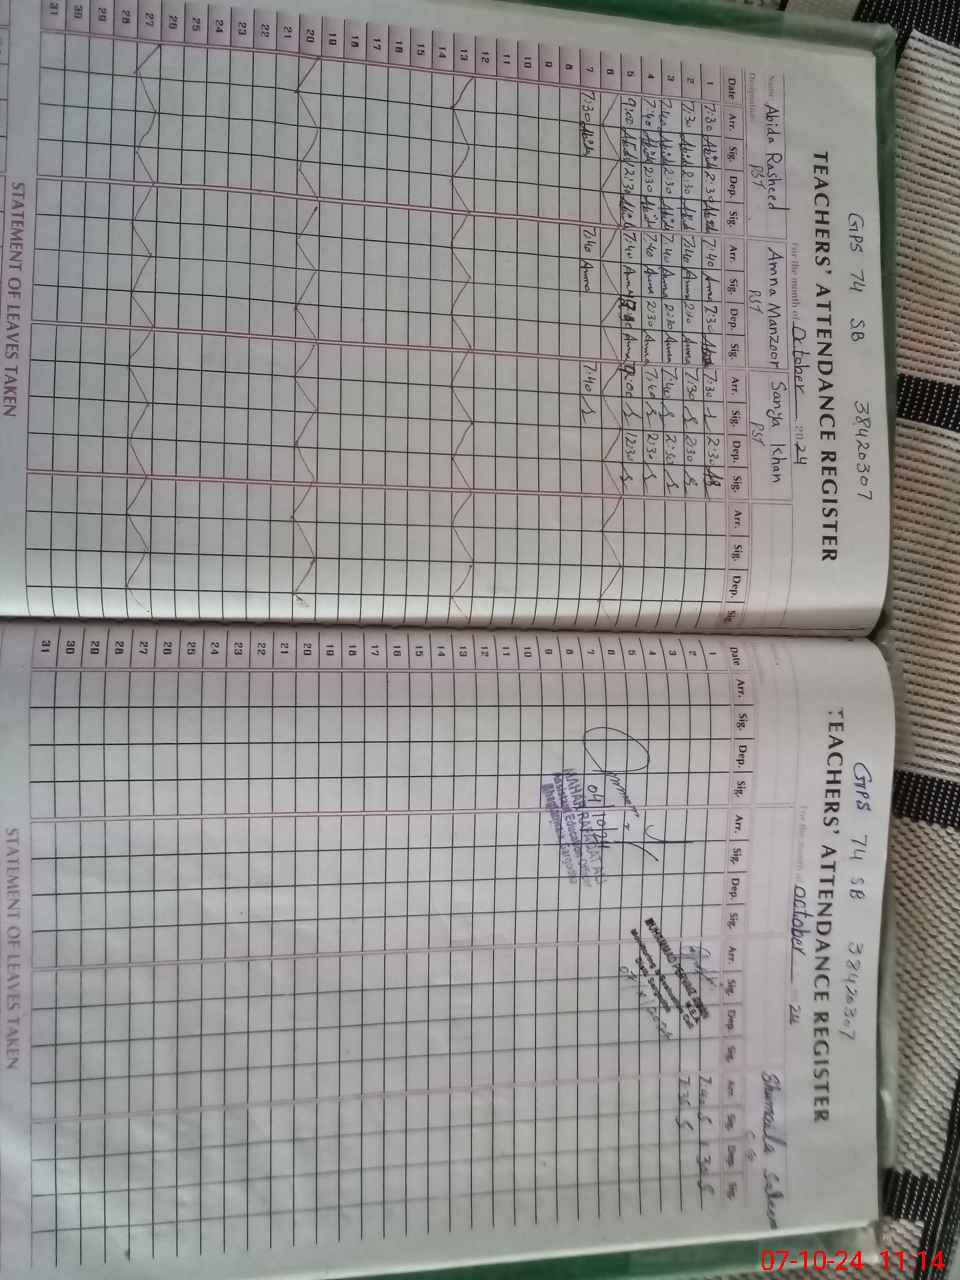 GPS 74 SB 38420307
TEACHERS' ATTENDANCE REGISTER
For the month of October 2024
Name Abida Rasheed Amna Manzoor Sanya Khan
Designation PST PST PST
Date Arr. Sig. Dep. Sig. Arr. Sig. Dep. Sig. Arr. Sig. Dep. Sig. Arr. Sig. Dep. Sig.
1 7:30 Abid 2:30 Abid 7:40 Amna 2:30 7:30 S 2:30
2 7:30 Abid 2:30 Abid 7:40 Amna 2:30 Amna 7:30 S 2:30 S
3 7:40 Abid 2:30 Abid 7:40 Amna 2:30 Amna 7:40 S 2:30 S
4 7:40 Abid 2:30 Abid 7:40 Amna 2:30 Amna 7:40 S 2:30 S
5 9:00 Abid 12:30 Abid 7:40 Amna Amna 9:00 S 12:30 S
6
7 7:30 Abida 7:40 Amna 7:40 S
8
9
10
11
12
13
14
15
16
17
18
19
20
21
22
23
24
25
26
27
28
29
30
31
STATEMENT OF LEAVES TAKEN
GPS 74 SB 38420307
TEACHERS' ATTENDANCE REGISTER
For the month of October 24
Shumaila Saleem
Date Arr. Sig. Dep. Sig. Arr. Sig. Dep. Sig. Arr. Sig. Dep. Sig. Arr. Sig. Dep. Sig.
1 7:40 S 1:30 S
2 S
3
4
5
6
7
8
9
10
11
12
13
14
15
16
17
18
19
20
21
22
23
24
25
26
27
28
29
30
31
04/10/24
Assistant Education Officer
Monitoring & Evaluation Cell
STATEMENT OF LEAVES TAKEN
07-10-24 11:14